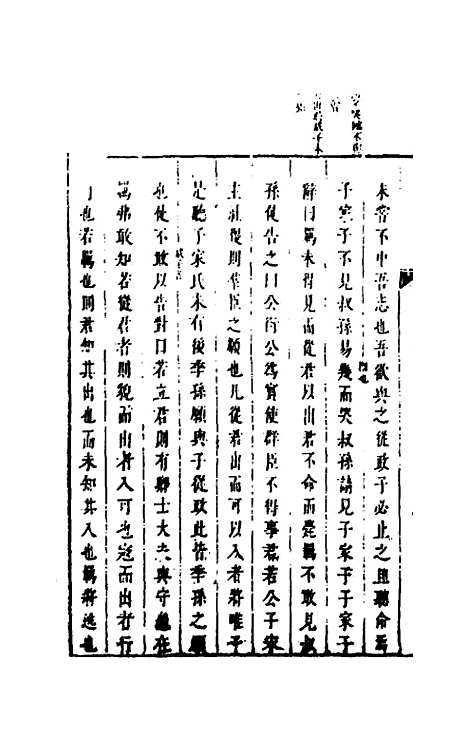 未嘗不中吾志也吾欲與之從政子必止之且聽命焉
子家子不見叔孫易幾而哭叔孫請見子家子子家子
辭曰羈未得見而從君以出君不命而薨羈不敢見叔
孫使告之曰公衍公為實使群臣不得事君若公子宋
主社稷則群臣之願也凡從君出而可以入者將唯子
是聽子家氏未有後季孫願與子從政此皆季孫之願
也使不敢以告對曰若立君則有卿士大夫與守龜在
羈弗敢知若從君者則貌而出者入可也寇而出者行
可也若羈也則君知其出也而未知其入也羈將逃也